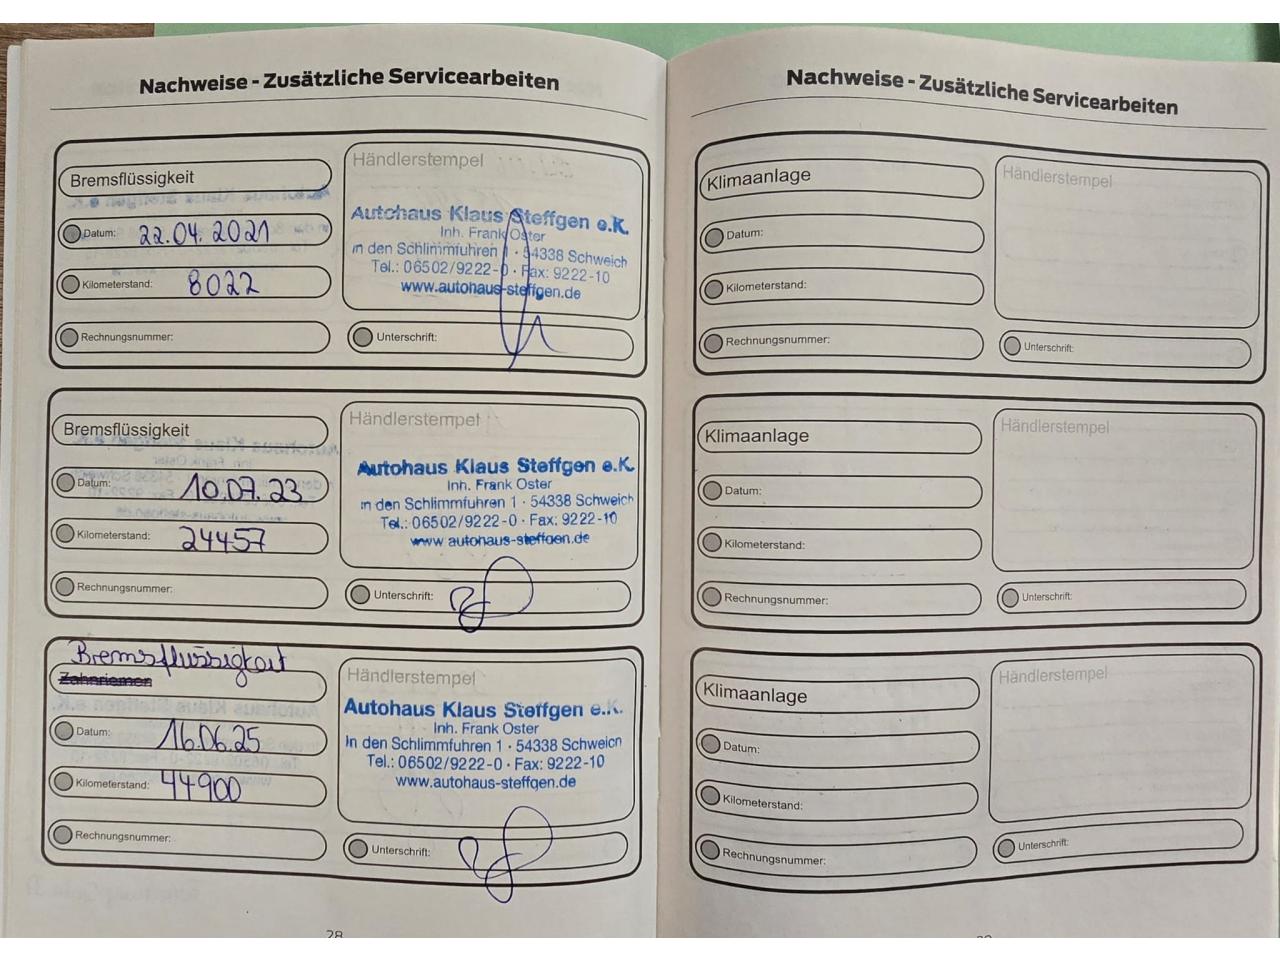 Nachweise - Zusätzliche Servicearbeiten
Bremsflüssigkeit
Datum: 22.04.2021
Kilometerstand: 8022
Rechnungsnummer:
Händlerstempel
Autohaus Klaus Steffgen e.K.
Inh. Frank Oster
in den Schlimmfuhren 1 · 54338 Schweich
Tel.: 06502/9222-0 · Fax: 9222-10
www.autohaus-steffgen.de
Unterschrift:
Bremsflüssigkeit
Datum: 10.07.23
Kilometerstand: 24457
Rechnungsnummer:
Händlerstempel
Autohaus Klaus Steffgen e.K.
Inh. Frank Oster
in den Schlimmfuhren 1 · 54338 Schweich
Tel.: 06502/9222-0 · Fax: 9222-10
www autohaus-steffgen.de
Unterschrift:
Bremsflüssigkeit
Zahnriemen
Datum: 16.06.25
Kilometerstand: 44900
Rechnungsnummer:
Händlerstempel
Autohaus Klaus Steffgen e.K.
Inh. Frank Oster
In den Schlimmfuhren 1 · 54338 Schweich
Tel.: 06502/9222-0 · Fax: 9222-10
www.autohaus-steffgen.de
Unterschrift:
28
Nachweise - Zusätzliche Servicearbeiten
Klimaanlage
Datum:
Kilometerstand:
Rechnungsnummer:
Händlerstempel
Unterschrift:
Klimaanlage
Datum:
Kilometerstand:
Rechnungsnummer:
Händlerstempel
Unterschrift:
Klimaanlage
Datum:
Kilometerstand:
Rechnungsnummer:
Händlerstempel
Unterschrift: